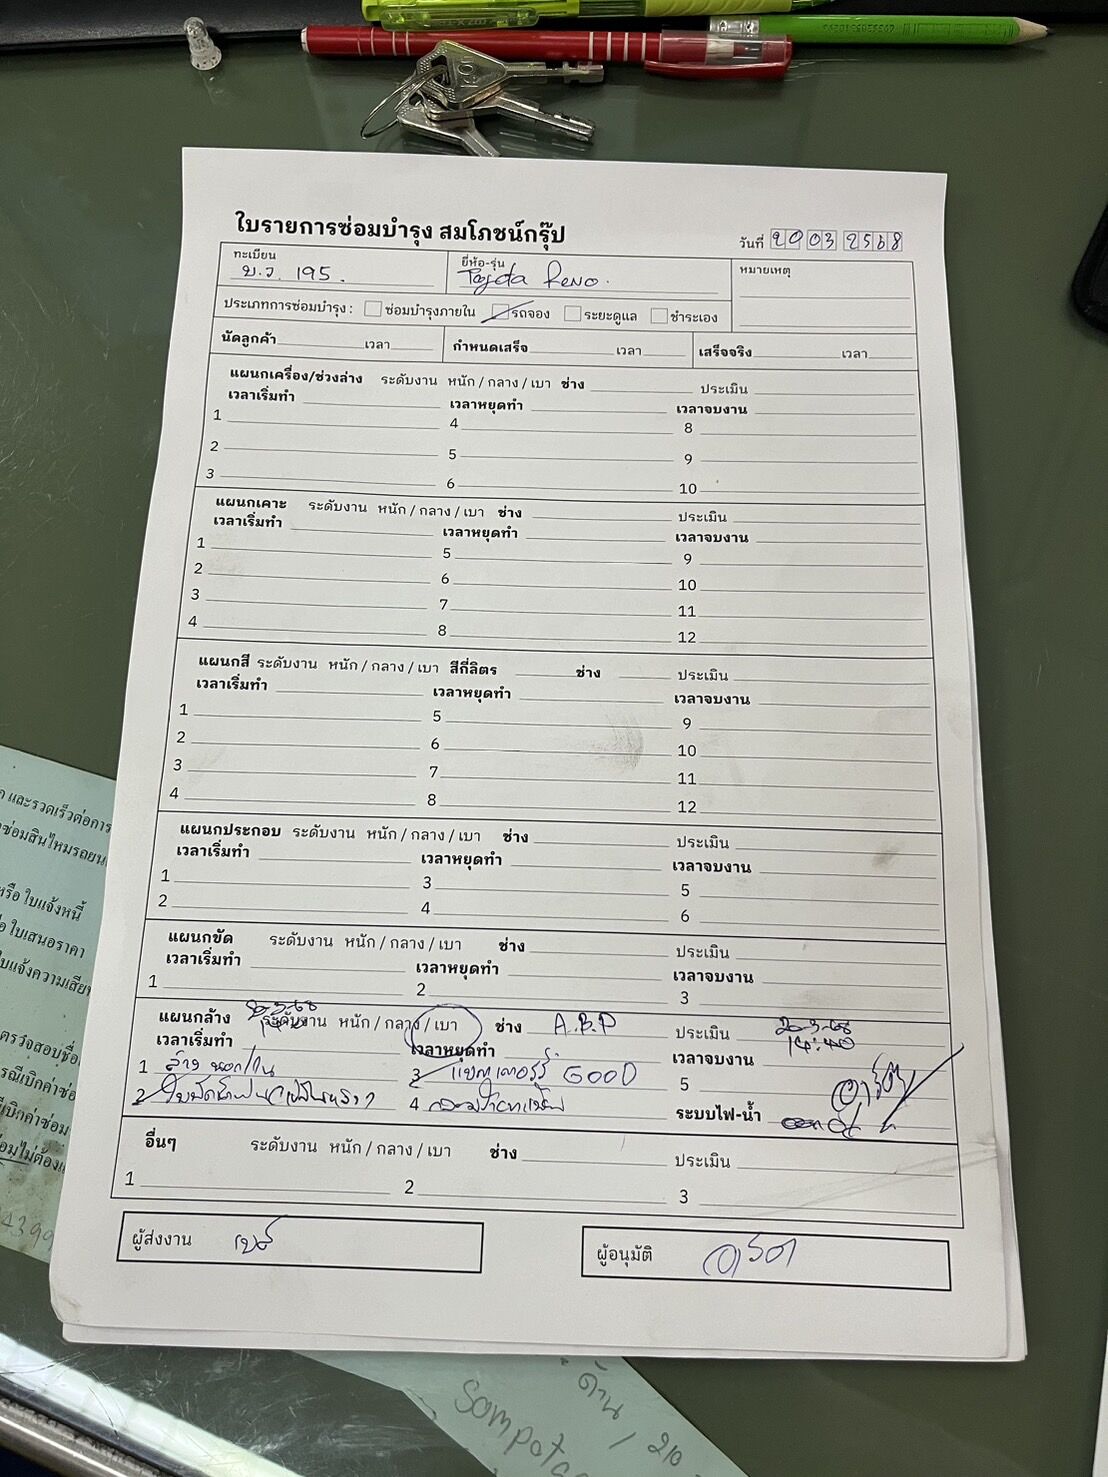 ใบรายการซ่อมบำรุง สมโภชน์กรุ๊ป
วันที่ 20 03 2568
ทะเบียน ยี่ห้อ-รุ่น หมายเหตุ
195. Toyota Reno.
ประเภทการซ่อมบำรุง : ซ่อมบำรุงภายใน รถจอง ระยะดูแล ชำระเอง
นัดลูกค้า เวลา กำหนดเสร็จ เวลา เสร็จจริง เวลา
แผนกเครื่อง/ช่วงล่าง ระดับงาน หนัก / กลาง / เบา ช่าง ประเมิน
เวลาเริ่มทำ เวลาหยุดทำ เวลาจบงาน
1 4 8
2 5 9
3 6 10
แผนกเคาะ ระดับงาน หนัก / กลาง / เบา ช่าง ประเมิน
เวลาเริ่มทำ เวลาหยุดทำ เวลาจบงาน
1 5 9
2 6 10
3 7 11
4 8 12
แผนกสี ระดับงาน หนัก / กลาง / เบา สีกี่ลิตร ช่าง ประเมิน
เวลาเริ่มทำ เวลาหยุดทำ เวลาจบงาน
1 5 9
2 6 10
3 7 11
4 8 12
แผนกประกอบ ระดับงาน หนัก / กลาง / เบา ช่าง ประเมิน
เวลาเริ่มทำ เวลาหยุดทำ เวลาจบงาน
1 3 5
2 4 6
แผนกขัด ระดับงาน หนัก / กลาง / เบา ช่าง ประเมิน
เวลาเริ่มทำ เวลาหยุดทำ เวลาจบงาน
1 2 3
แผนกล้าง ระดับงาน หนัก / กลาง / เบา ช่าง A.B.P ประเมิน 20-3-68
เวลาเริ่มทำ เวลาหยุดทำ เวลาจบงาน 14:40
1 ล้าง นอก/ใน 3 แบตเตอรี่ GOOD 5
2 4 ระบบไฟ-น้ำ
อื่นๆ ระดับงาน หนัก / กลาง / เบา ช่าง ประเมิน
1 2 3
ผู้ส่งงาน ผู้อนุมัติ
และรวดเร็วต่อการ
ซ่อมสินไหมรถยน
หรือ ใบแจ้งหนี้
ใบเสนอราคา
ใบแจ้งความเสีย
ตรวจสอบชื่อ
รณีเบิกค่าซ่อม
เบิกค่าซ่อม
อมไม่ต้อง
4399
ด้าน / 210